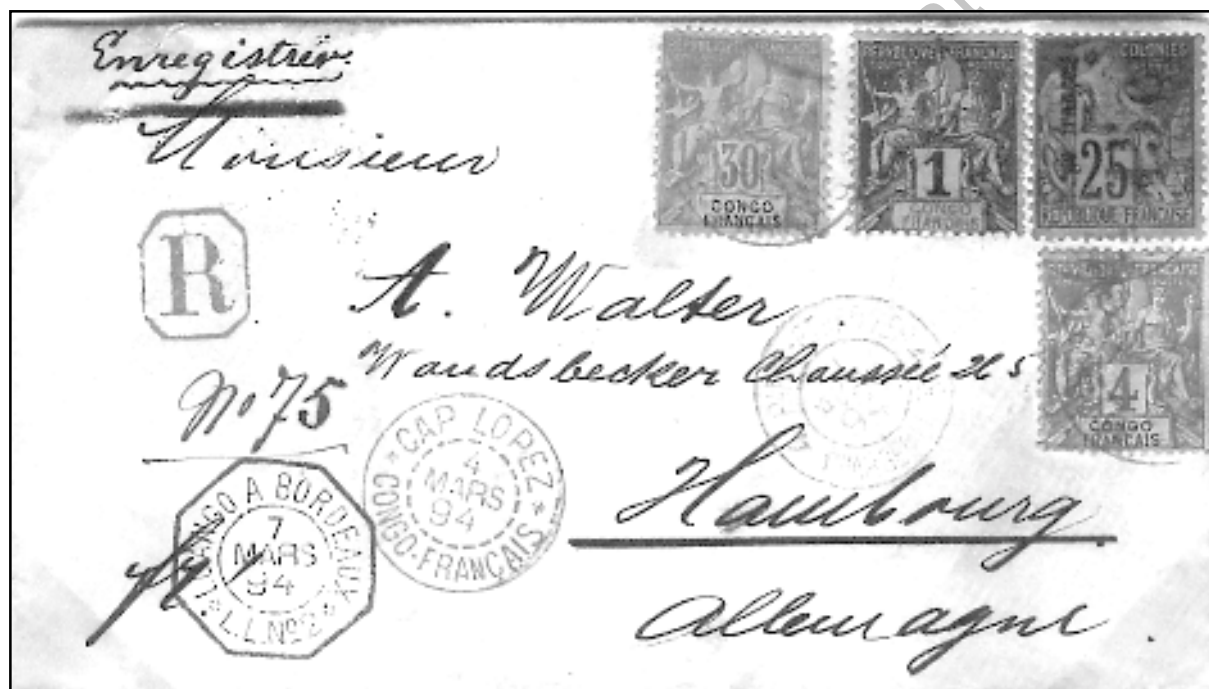 Enregistrée
Monsieur
R
A. Walter
Wandsbecker Chaussée
No 75
Hambourg
Allemagne
RÉPUBLIQUE FRANÇAISE
30
CONGO
FRANÇAIS
RÉPUBLIQUE FRANÇAISE
1
CONGO
FRANÇAIS
COLONIES
25
RÉPUBLIQUE FRANÇAISE
RÉPUBLIQUE FRANÇAISE
4
CONGO
FRANÇAIS
CAP LOPEZ
4
MARS
94
CONGO-FRANÇAIS
LOANGO A BORDEAUX
7
MARS
94
L.L. Nº 2